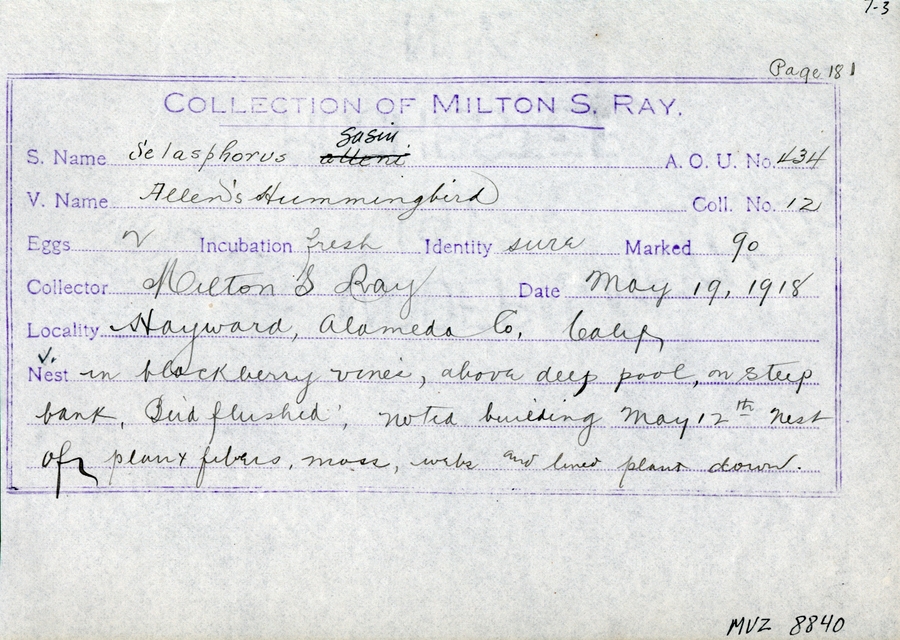 7-3
Page 181
COLLECTION OF MILTON S. RAY.
sasin
S. Name Selasphorus alleni A. O. U. No. 434
V. Name Allen's Hummingbird Coll. No. 12
Eggs 2 Incubation fresh Identity sure Marked 90
Collector Milton S Ray Date May 19, 1918
Locality Hayward, Alameda Co, Calif,
v.
Nest in blackberry vines, above deep pool, on steep
bank, Bird flushed, noted building May 12th Nest
of plant fibers, moss, webs and lined plant down.
MVZ 8840